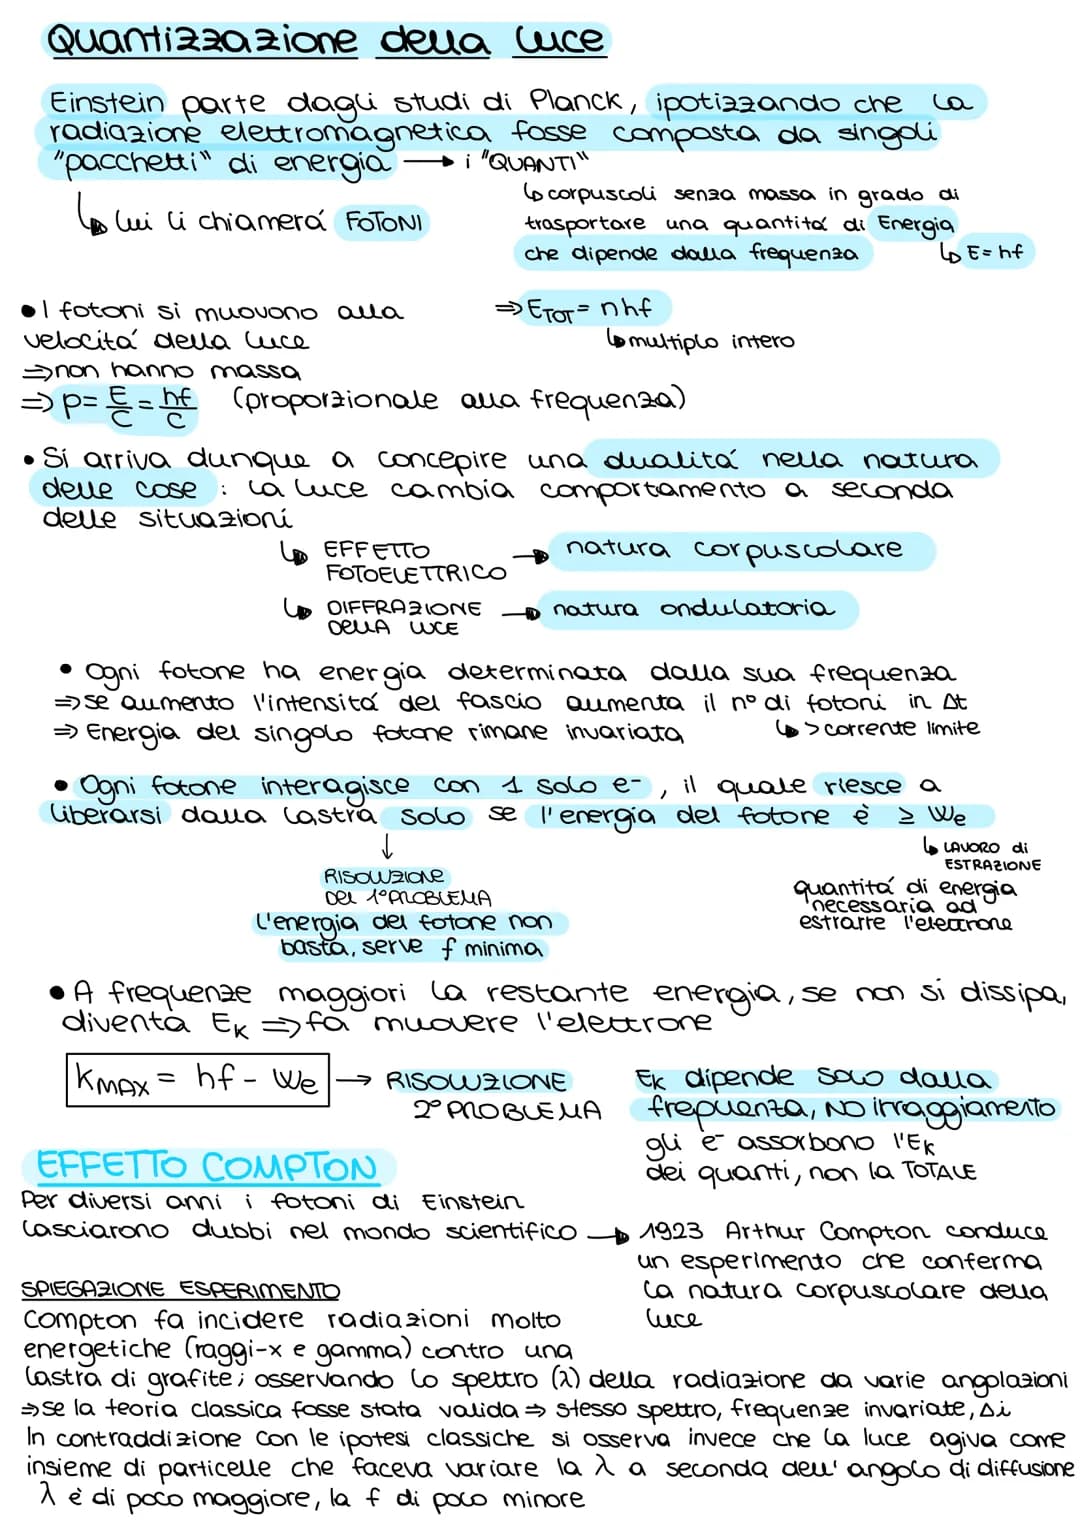 Quantizzazione della luce
Einstein parte dagli studi di Planck, ipotizzando che la
radiazione elettromagnetica fosse composta da singoli
"pacchetti" di energia → i "QUANTI"
↳ corpuscoli senza massa in grado di
trasportare una quantità di Energia
che dipende dalla frequenza
↳ E = hf
↳ lui li chiamerá FOTONI
• I fotoni si muovono alla
velocitá della luce
⇒ non hanno massa
⇒ p = E/C = hf/C (proporzionale alla frequenza)
⇒ ETOT = nhf
↳ multiplo intero
• Si arriva dunque a concepire una dualitá nella natura
delle cose : la luce cambia comportamento a seconda
delle situazioni
↳ EFFETTO
FOTOELETTRICO → natura corpuscolare
↳ DIFFRAZIONE
DELLA LUCE → natura ondulatoria
• Ogni fotone ha energia determinata dalla sua frequenza
⇒ se aumento l'intensitá del fascio aumenta il n° di fotoni in Δt
⇒ Energia del singolo fotone rimane invariata
↳ > corrente limite
• Ogni fotone interagisce con 1 solo e-, il quale riesce a
liberarsi dalla lastra solo se l'energia del fotone è ≥ We
↳ LAVORO di
ESTRAZIONE
quantitá di energia
necessaria ad
estrarre l'elettrone
↓
RISOLUZIONE
DEL 1° PROBLEMA
L'energia del fotone non
basta, serve f minima
• A frequenze maggiori la restante energia, se non si dissipa,
diventa EK ⇒ fa muovere l'elettrone
KMAX = hf - We → RISOLUZIONE
2° PROBLEMA
EK dipende solo dalla
frequenza, NO irraggiamento
gli e- assorbono l'EK
dei quanti, non la TOTALE
EFFETTO COMPTON
Per diversi anni i fotoni di Einstein
lasciarono dubbi nel mondo scientifico → 1923 Arthur Compton conduce
un esperimento che conferma
la natura corpuscolare della
luce
SPIEGAZIONE ESPERIMENTO
Compton fa incidere radiazioni molto
energetiche (raggi-x e gamma) contro una
lastra di grafite; osservando lo spettro (λ) della radiazione da varie angolazioni
⇒ se la teoria classica fosse stata valida ⇒ stesso spettro, frequenze invariate, Δi
In contraddizione con le ipotesi classiche si osserva invece che la luce agiva come
insieme di particelle che faceva variare la λ a seconda dell'angolo di diffusione
λ è di poco maggiore, la f di poco minore